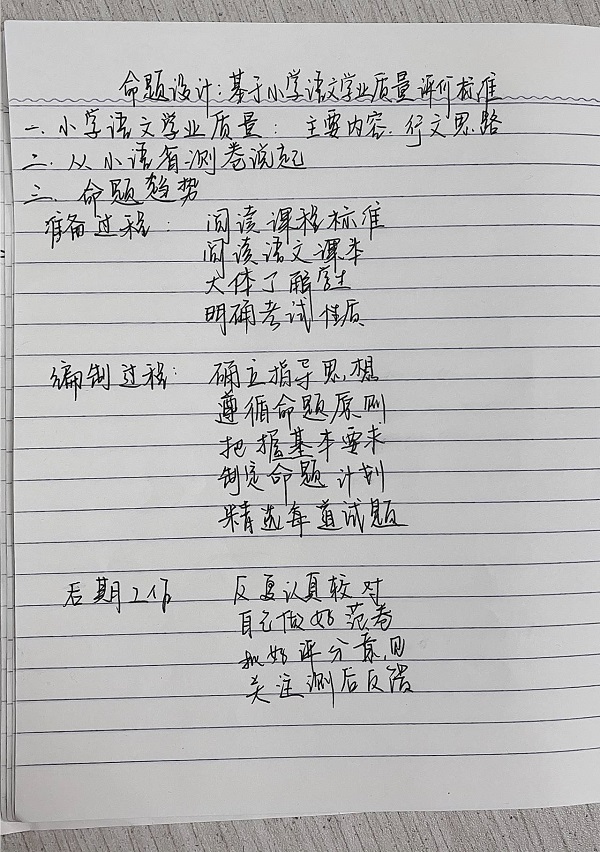 命题设计:基于小学语文学业质量评价标准
一.小学语文学业质量: 主要内容.行文思路
二.从小语省测卷说起
三.命题趋势
准备过程: 阅读课程标准
阅读语文课本
大体了解学生
明确考试性质
编制过程: 确立指导思想
遵循命题原则
把握基本要求
制定命题计划
精选每道试题
后期工作 反复认真较对
自己做好范卷
拟好评分意见
关注测后反馈